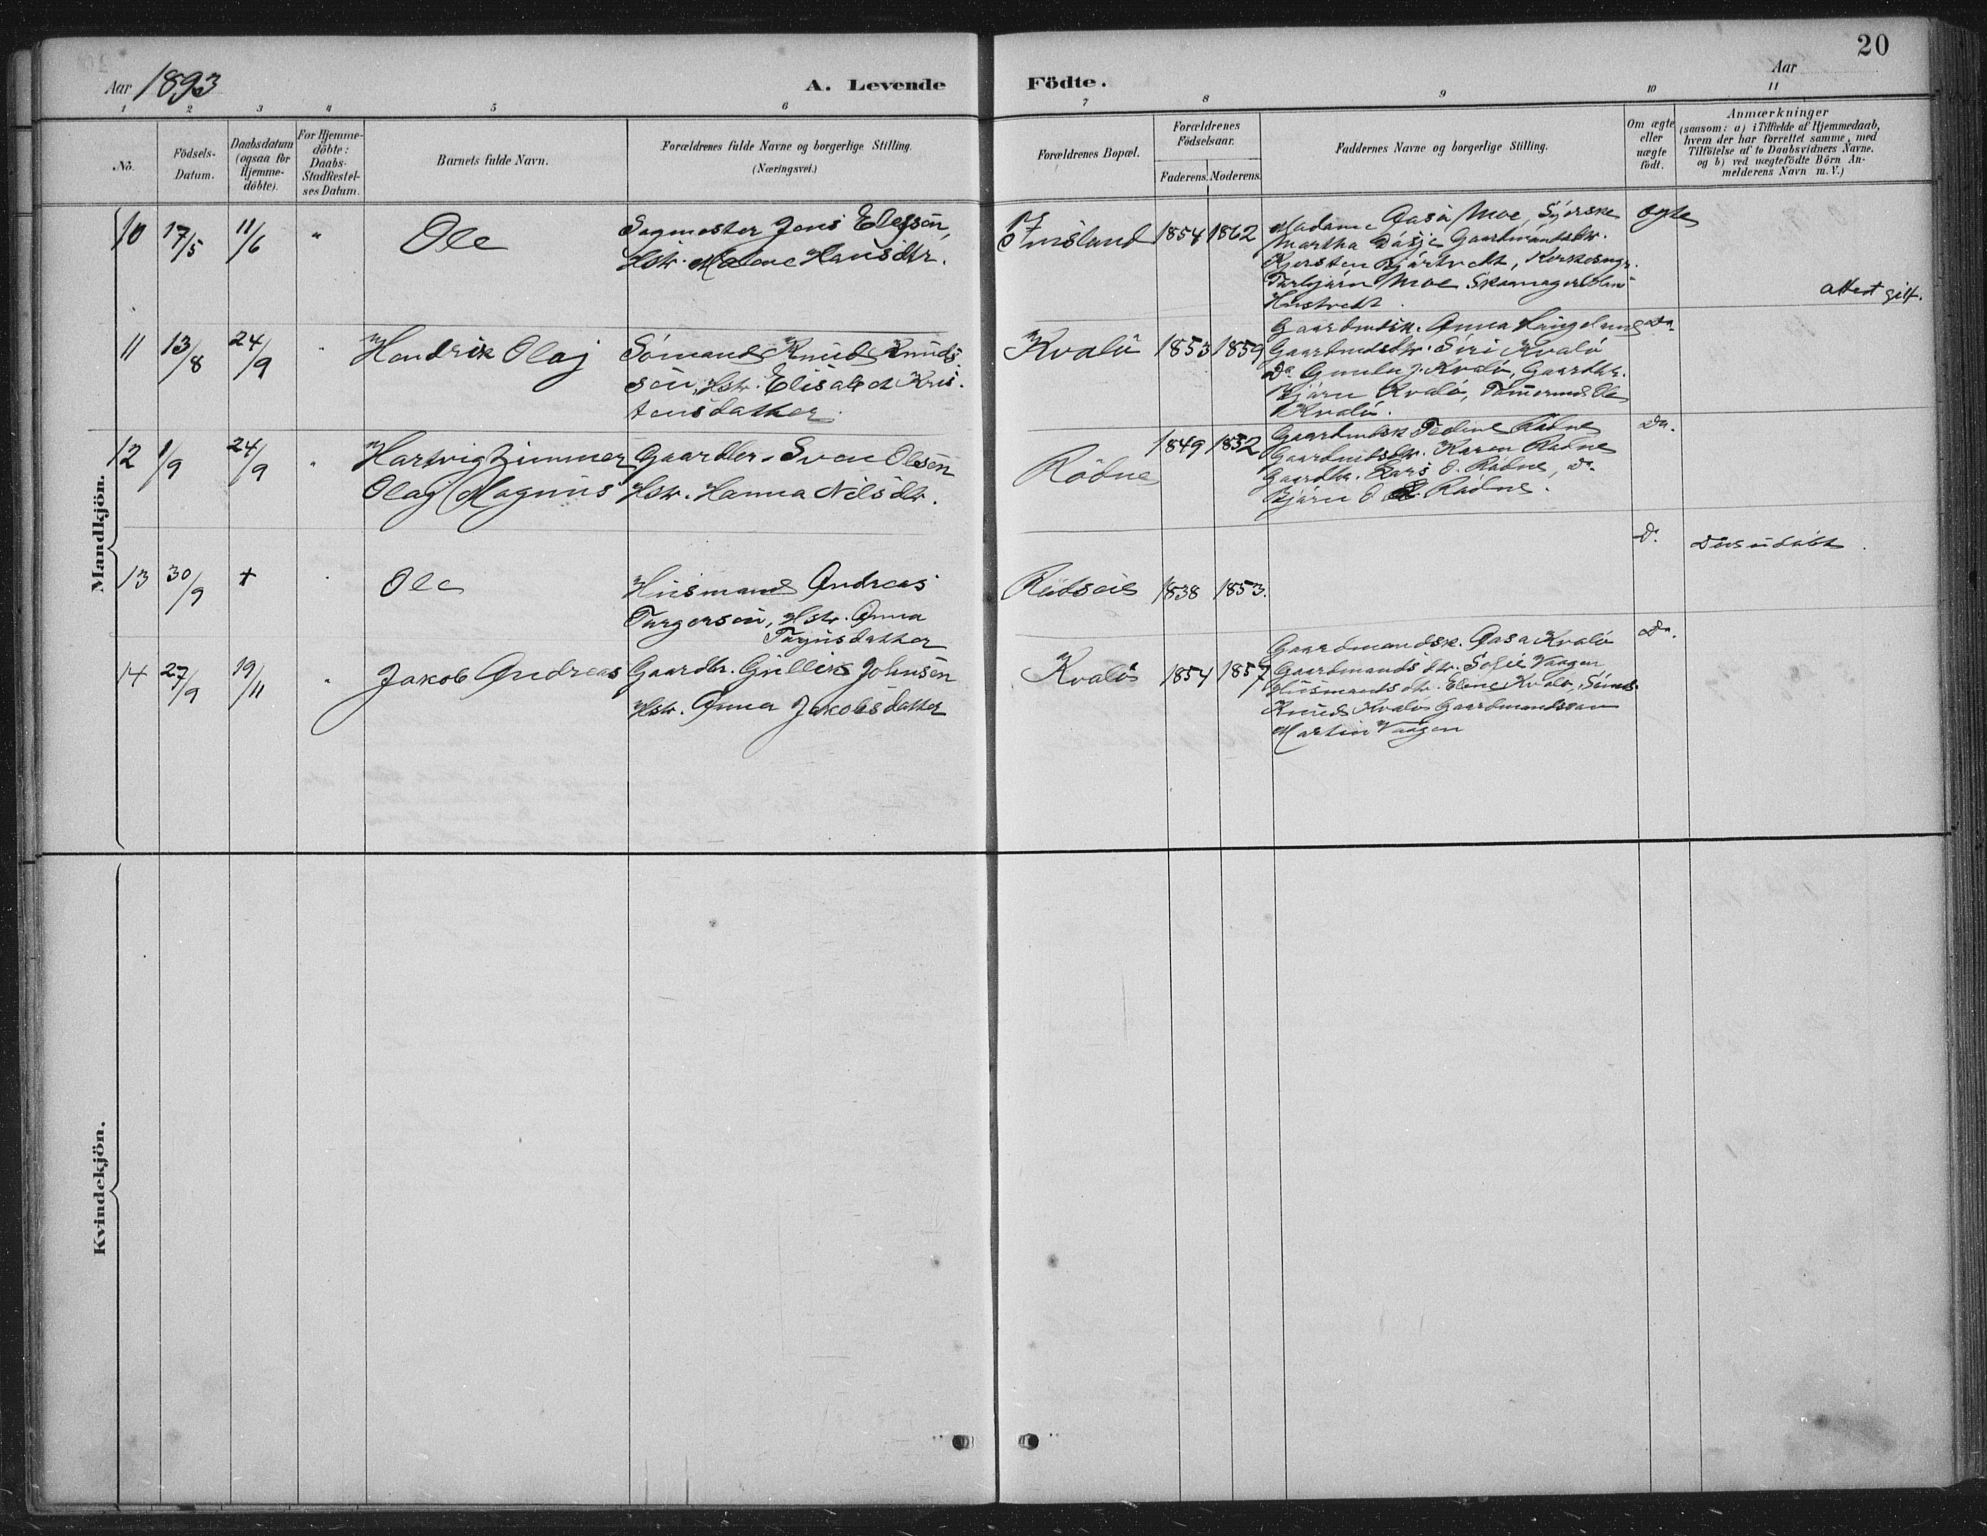 20
Aar 1893
A. Levende Födte.
Aar
1 2 3 4 5 6 7 8 9 10 11
No.
Födsels-Datum.
Daabsdatum (ogsaa for Hjemme-döbte).
For Hjemme-döbte: Daabs-Stadfæstel-ses Datum.
Barnets fulde Navn.
Forældrenes fulde Navne og borgerlige Stilling.
(Næringsvei.)
Forældrenes Bopæl.
Forældrenes Födselsaar.
Faderens. Moderens.
Faddernes Navne og borgerlige Stilling.
Om ægte eller uægte födt.
Anmærkninger
(saasom: a) i Tilfælde af Hjemmedaab,
hvem der har forrettet samme, med
Tilföielse af to Daabsvidners Navne,
og b) ved uægtefödte Börn An-
melderens Navn m. V.)
Mandkjön.
10 17/5 11/6 " Ole
Sagmester Jens
Hstr. Malene Hansdtr.
1854 1862
Madame Aasa Moe, Syerske
Martha Gaardmandsdtr.
Torbjørn Moe
ægte
attest gitt.
11 13/8 24/9 " Hendrik Olaj
Sömand Knud Knud-
sön, Hstr. Elisabet Kris-
tensdatter.
Kvalö 1853 1859
Gaardmdsk. Anna
Gaardmdsdtr. Siri Kvalö
Do Kvalö, Gaardbr.
Bjørn Kvalö, Tømermd Ole
Kvalö.
Do.
12 1/9 24/9 " Hartvig Zimmer
Olag Magnus
Gaardbr. Sven Olsen
Hstr. Hanna Nilsdtr.
Rödne 1849 1852
Gaardmdsk Rödne
Gaardmdsdtr. Karen Rödne
Gaardbr. Lars O. Rödne, Do.
Bjørn O Rödne.
Do.
13 30/9 + " Ole
Husmand Andreas
Torgersen, Hstr. Anna
1838 1853.
Do.
Döde udöbt.
14 27/9 19/11 " Jakob Andreas
Gaardbr. Gullik Johnsen
Hstr. Anna Jakobsdatter
Kvalö 1854 1857
Gaardmandsk. Aasa Kvalö
Gaardmandsdtr. Sofie Vaagen
Husmandsdtr. Elene Kvalö,
Knud Kvalö Gaardmandssøn
Martin Vaagen
Do.
Kvindekjön.